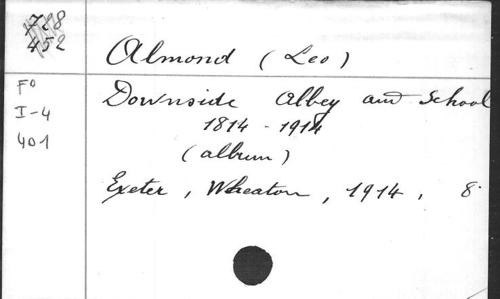 728
452
Almond (Leo)
Fo
I-4
401
Downside Abbey and School
1814-1914
(album)
Exeter, Wheaton, 1914, 8°